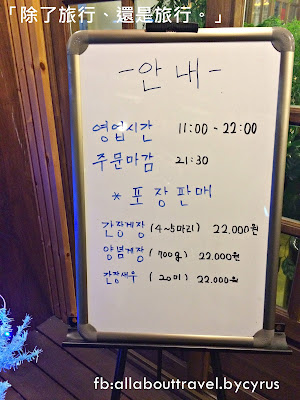 「除了旅行、還是旅行。」
- 안 내 -
영업시간 11:00 - 22:00
주문마감 21:30
* 포 장 판 매
간장게장 (4~5마리) 22.000원
양념게장 (700g) 22.000원
간장새우 (20미) 22.000원
fb:allabouttravel.bycyrus